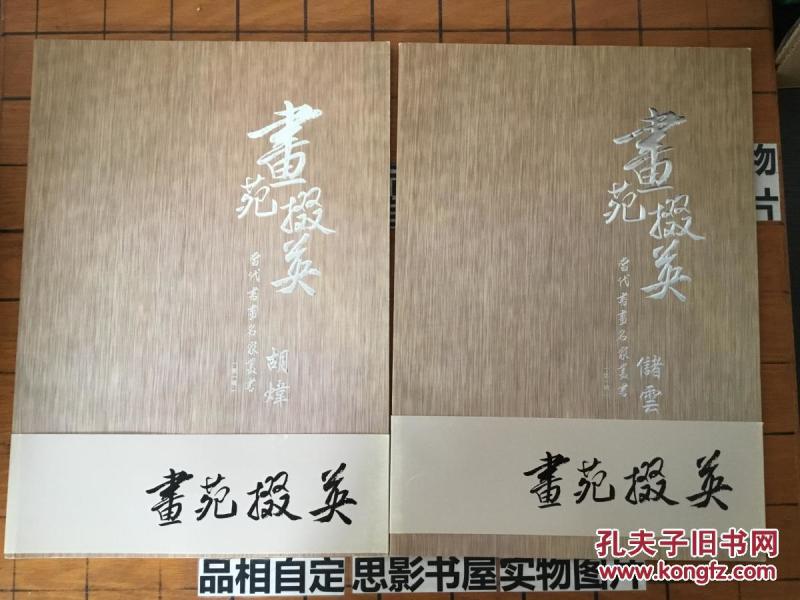 畫苑掇英
當代書畫名家叢書
(第一辑)
胡煒
畫苑掇英
畫苑掇英
當代書畫名家叢書
儲雲
畫苑掇英
物
片
品相自定 思影书屋实物图片
孔夫子旧书网
www.kongfz.com